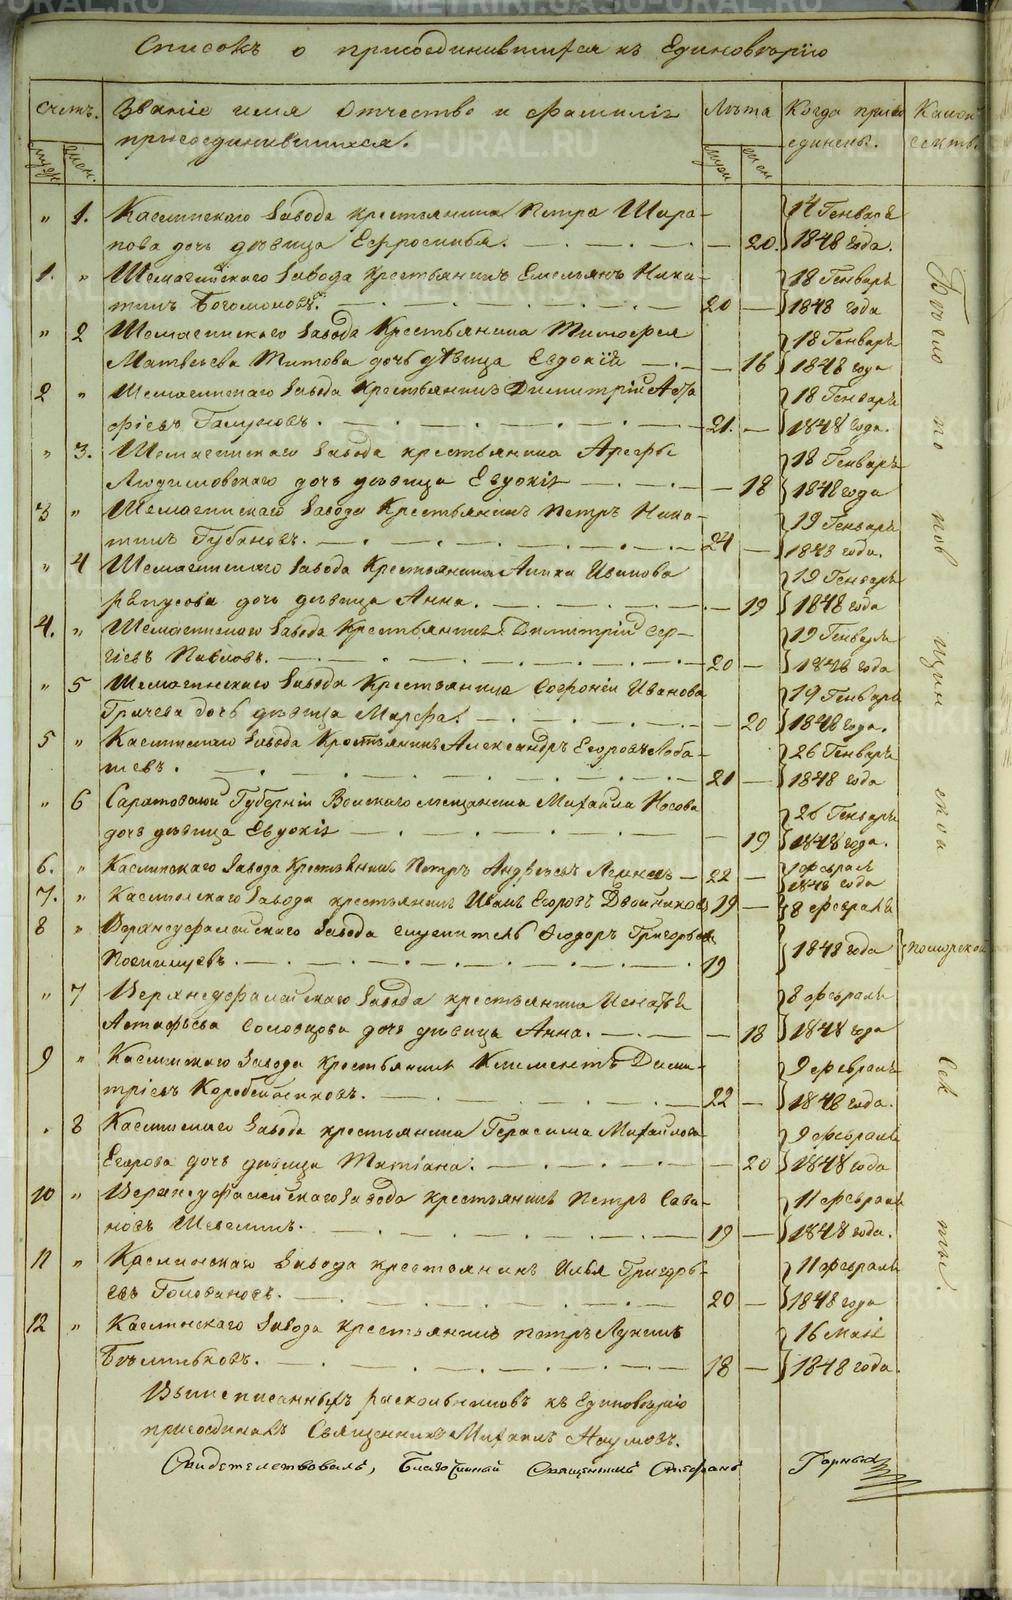 Списокъ о присоединившихся къ Единовѣрію
Счетъ. Званіе имя отчество и фамиліе Лѣта Когда присо- Какой
присоединившихся. единенъ. секты.
муж. жен. муж. жен.
„ 1. Каслинскаго Завода крестьянина Петра Шара- 14 Генваря
пова дочь дѣвица Ефросинья. — 20. 1848 года.
1. „ Шемахинскаго Завода Крестьянинъ Емельянъ Ники- 18 Генваря
тинъ Богомоловъ. 20 — 1848 года
„ 2 Шемахинскаго Завода Крестьянина Тимофея 18 Генваря
Матвѣева Титова дочь дѣвица Евдокія — 16 1848 года
2 „ Шемахинскаго Завода Крестьянинъ Димитрій 18 Генваря
фіевъ 21. — 1848 года.
„ 3. Шемахинскаго Завода крестьянина Арефы 18 Генваря
Людиновскаго дочь дѣвица Евдокія — 18 1848 года
3 „ Шемахинскаго Завода Крестьянинъ Петръ Ники- 19 Генваря
тинъ Губановъ. 24 — 1848 года.
„ 4 Шемахинскаго Завода Крестьянина Иванова 19 Генваря
дочь дѣвица Анна. — 19 1848 года
4. „ Шемахинскаго Завода Крестьянинъ Димитрій Сер- 19 Генваря
гіевъ Павловъ. 20 — 1848 года
„ 5 Шемахинскаго Завода Крестьянина Софронія Иванова 19 Генваря
Грачева дочь дѣвица Марфа. — 20 1848 года.
5 „ Каслинскаго Завода Крестьянинъ Александръ Егоровъ Лоба- 26 Генваря
шевъ. 21 — 1848 года
„ 6 Саратовской Губерніи Вольскаго мещанина Михаила Носова 26 Генваря
дочь дѣвица Евдокія — 19 1848 года.
6. „ Каслинскаго Завода Крестьянинъ Петръ Андреевъ — 22 — февраля
1848 года
7. „ Каслинскаго Завода крестьянинъ Иванъ Егоровъ Двойниковъ 19 — 8 февраля
8 „ Верхнеуфалейскаго Завода служитель Ѳеодоръ Григорьевъ 1848 года Поморской
19
„ 7 Верхнеуфалейскаго Завода крестьянина Игнатія 8 февраля
Астафьева Соловцова дочь дѣвица Анна. — 18 1848 года
9 „ Каслинскаго Завода Крестьянинъ Климентъ Дими- 9 февраля
тріевъ Коробейниковъ. 22 — 1848 года.
„ 8 Каслинскаго Завода крестьянина Герасима Михайлова 9 февраля
Егорова дочь дѣвица Татіана. — 20 1848 года
10 „ Верхнеуфалейскаго Завода крестьянинъ Петръ Сава- 11 февраля
новъ 19 — 1848 года.
11 „ Каслинскаго Завода крестьянинъ Илья Григорь- 11 февраля
евъ Головановъ. 20 — 1848 года
12 „ Каслинскаго Завода крестьянинъ Петръ Лукинъ 16 Маія
Бѣлиньковъ. 18 — 1848 года.
Вышеписанныхъ раскольниковъ къ Единовѣрію
присоединилъ Священникъ Михаилъ Наумовъ.
Свидетельствовалъ, Благочинный Священникъ Стефанъ Горныхъ
сек ты
METRIKI.GASO-URAL.RU